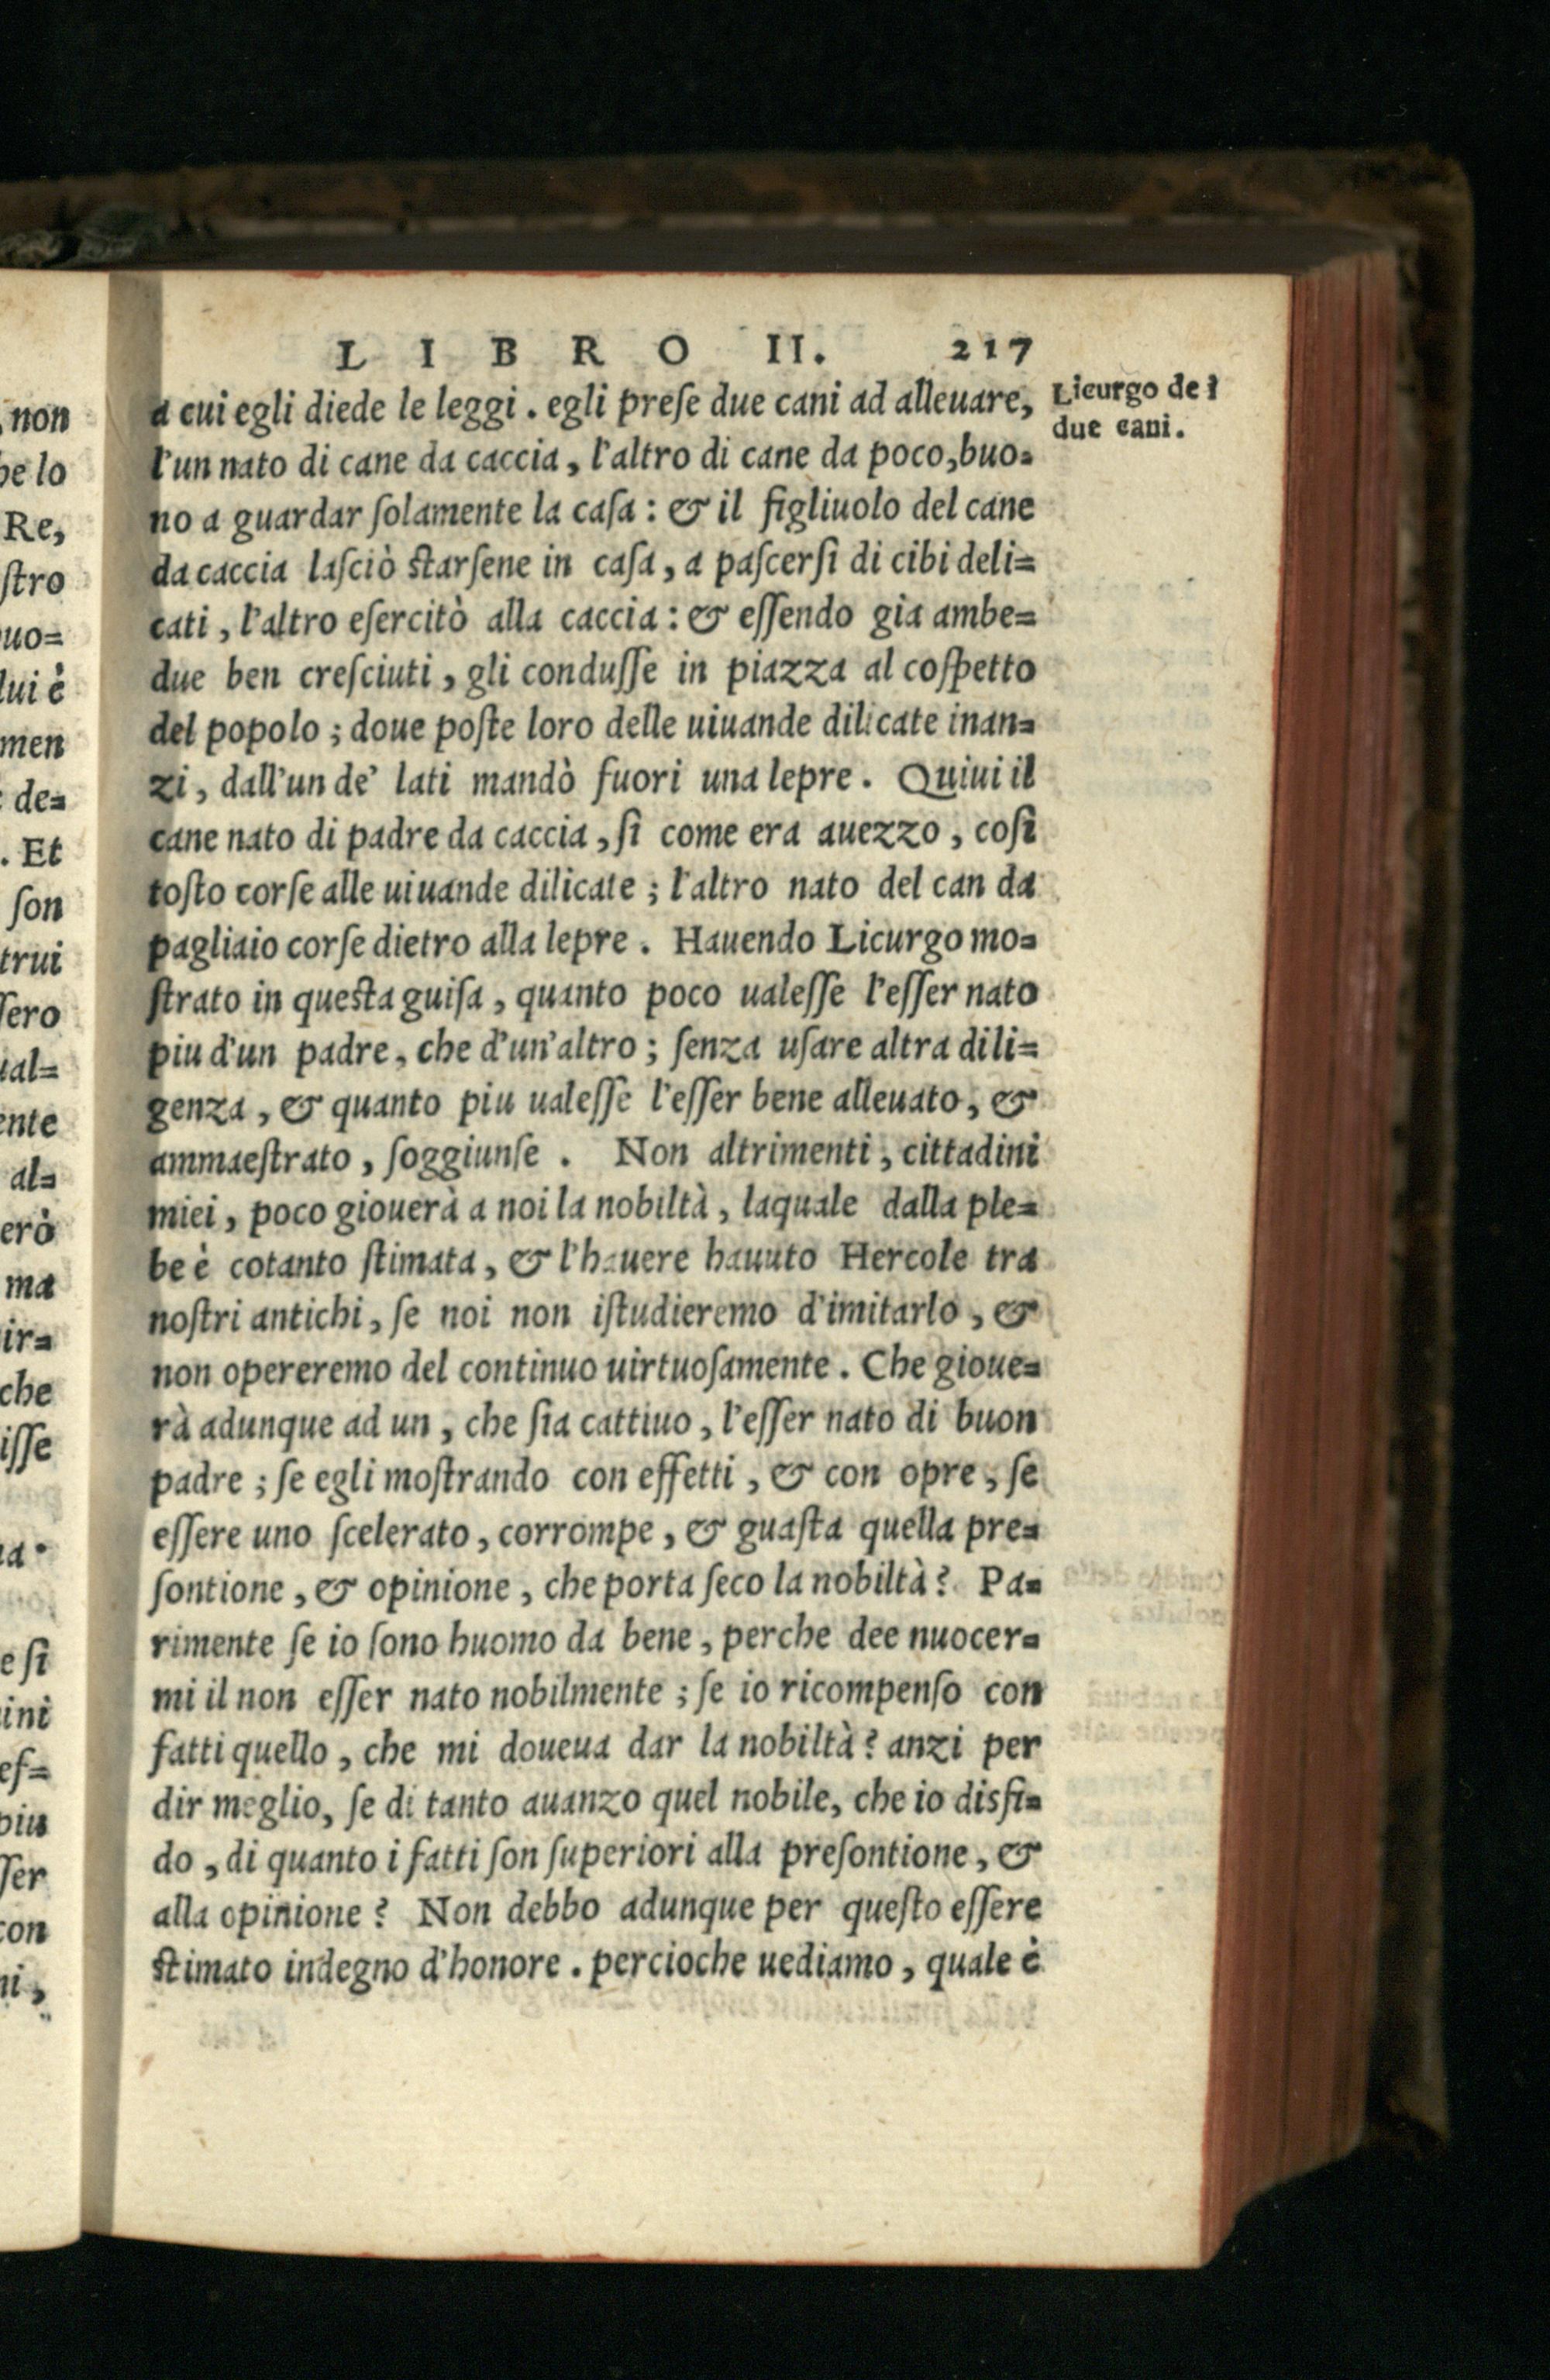 LIBRO II. 217
a cui egli diede le leggi. egli preſe due cani ad alleuare,
Licurgo de i
due cani.
l'un nato di cane da caccia, l'altro di cane da poco, buo=
no a guardar ſolamente la caſa: & il figliuolo del cane
da caccia laſciò ſtarſene in caſa, a paſcerſi di cibi deli=
cati, l'altro eſercitò alla caccia: & eſſendo gia ambe=
due ben creſciuti, gli conduſſe in piazza al coſpetto
del popolo; doue poſte loro delle uiuande dilicate inan=
zi, dall'un de' lati mandò fuori una lepre. Quiui il
cane nato di padre da caccia, ſi come era auezzo, coſi
toſto corſe alle uiuande dilicate; l'altro nato del can da
pagliaio corſe dietro alla lepre. Hauendo Licurgo mo=
ſtrato in queſta guiſa, quanto poco ualeſſe l'eſſer nato
piu d'un padre, che d'un'altro; ſenza uſare altra dili=
genza, & quanto piu ualeſſe l'eſſer bene alleuato, &
ammaeſtrato, ſoggiunſe. Non altrimenti, cittadini
miei, poco giouerà a noi la nobiltà, laquale dalla ple=
be è cotanto ſtimata, & l'hauere hauuto Hercole tra
noſtri antichi, ſe noi non iſtudieremo d'imitarlo, &
non opereremo del continuo uirtuoſamente. Che gioue=
rà adunque ad un, che ſia cattiuo, l'eſſer nato di buon
padre; ſe egli moſtrando con effetti, & con opre, ſe
eſſere uno ſcelerato, corrompe, & guaſta quella pre=
ſontione, & opinione, che porta ſeco la nobiltà? Pa=
rimente ſe io ſono huomo da bene, perche dee nuocer=
mi il non eſſer nato nobilmente; ſe io ricompenſo con
fatti quello, che mi doueua dar la nobiltà? anzi per
dir meglio, ſe di tanto auanzo quel nobile, che io disfi=
do, di quanto i fatti ſon ſuperiori alla preſontione, &
alla opinione? Non debbo adunque per queſto eſſere
ſtimato indegno d'honore. percioche uediamo, quale è